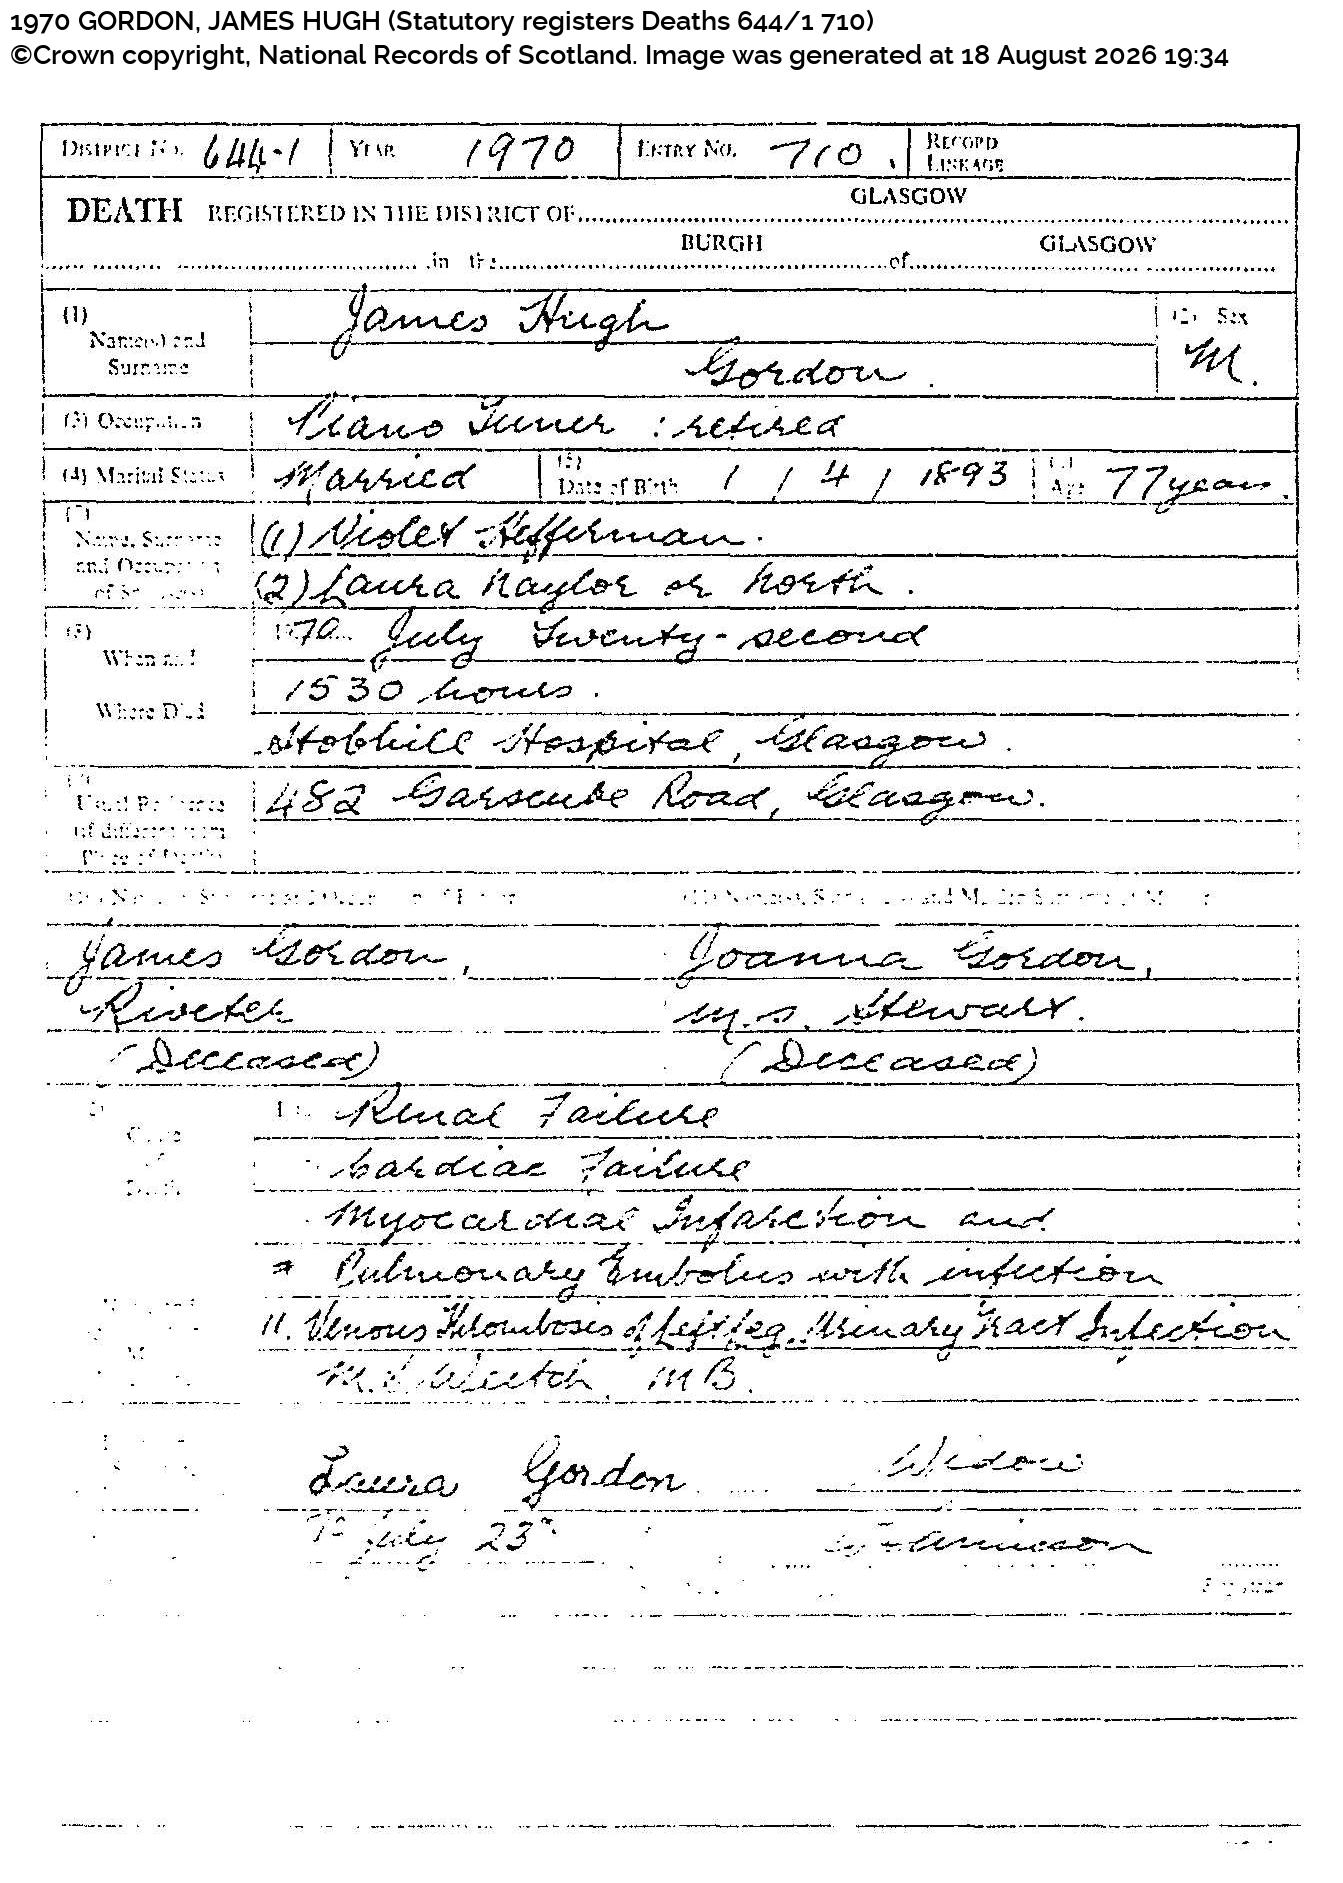 1970 GORDON, JAMES HUGH (Statutory registers Deaths 644/1 710)
©Crown copyright, National Records of Scotland. Image was generated at 18 August 2026 19:34
DISTRICT NO. 644-1 YEAR 1970 ENTRY NO. 710. RECORD LINKAGE
GLASGOW
DEATH REGISTERED IN THE DISTRICT OF
BURGH GLASGOW
in the of
(1) Name(s) and Surname James Hugh (2) Sex
Gordon. M.
(3) Occupation Piano Tuner : retired
(4) Marital Status Married (5) Date of Birth 1 / 4 / 1893 Age 77 years.
(7) Name, Surname (1) Violet Hefferman.
and Occupation of (2) Laura Naylor or North.
(8) When and 1970 July Twenty-second
1530 hours.
Where Died Stobhill Hospital, Glasgow.
Usual Residence 482 Garscube Road, Glasgow.
(if different from
Place of Death)
(11) Name(s), and Maiden Surname of
James Gordon, Joanna Gordon,
Riveter m.s. Stewart.
(Deceased) (Deceased)
I Renal Failure
Cause of Cardiac Failure
Death Myocardial Infarction and
Pulmonary Embolus with infection
II. Venous Thrombosis of Left leg. Urinary Tract Infection
M. MB.
Laura Gordon Widow
70 July 23rd
Registrar